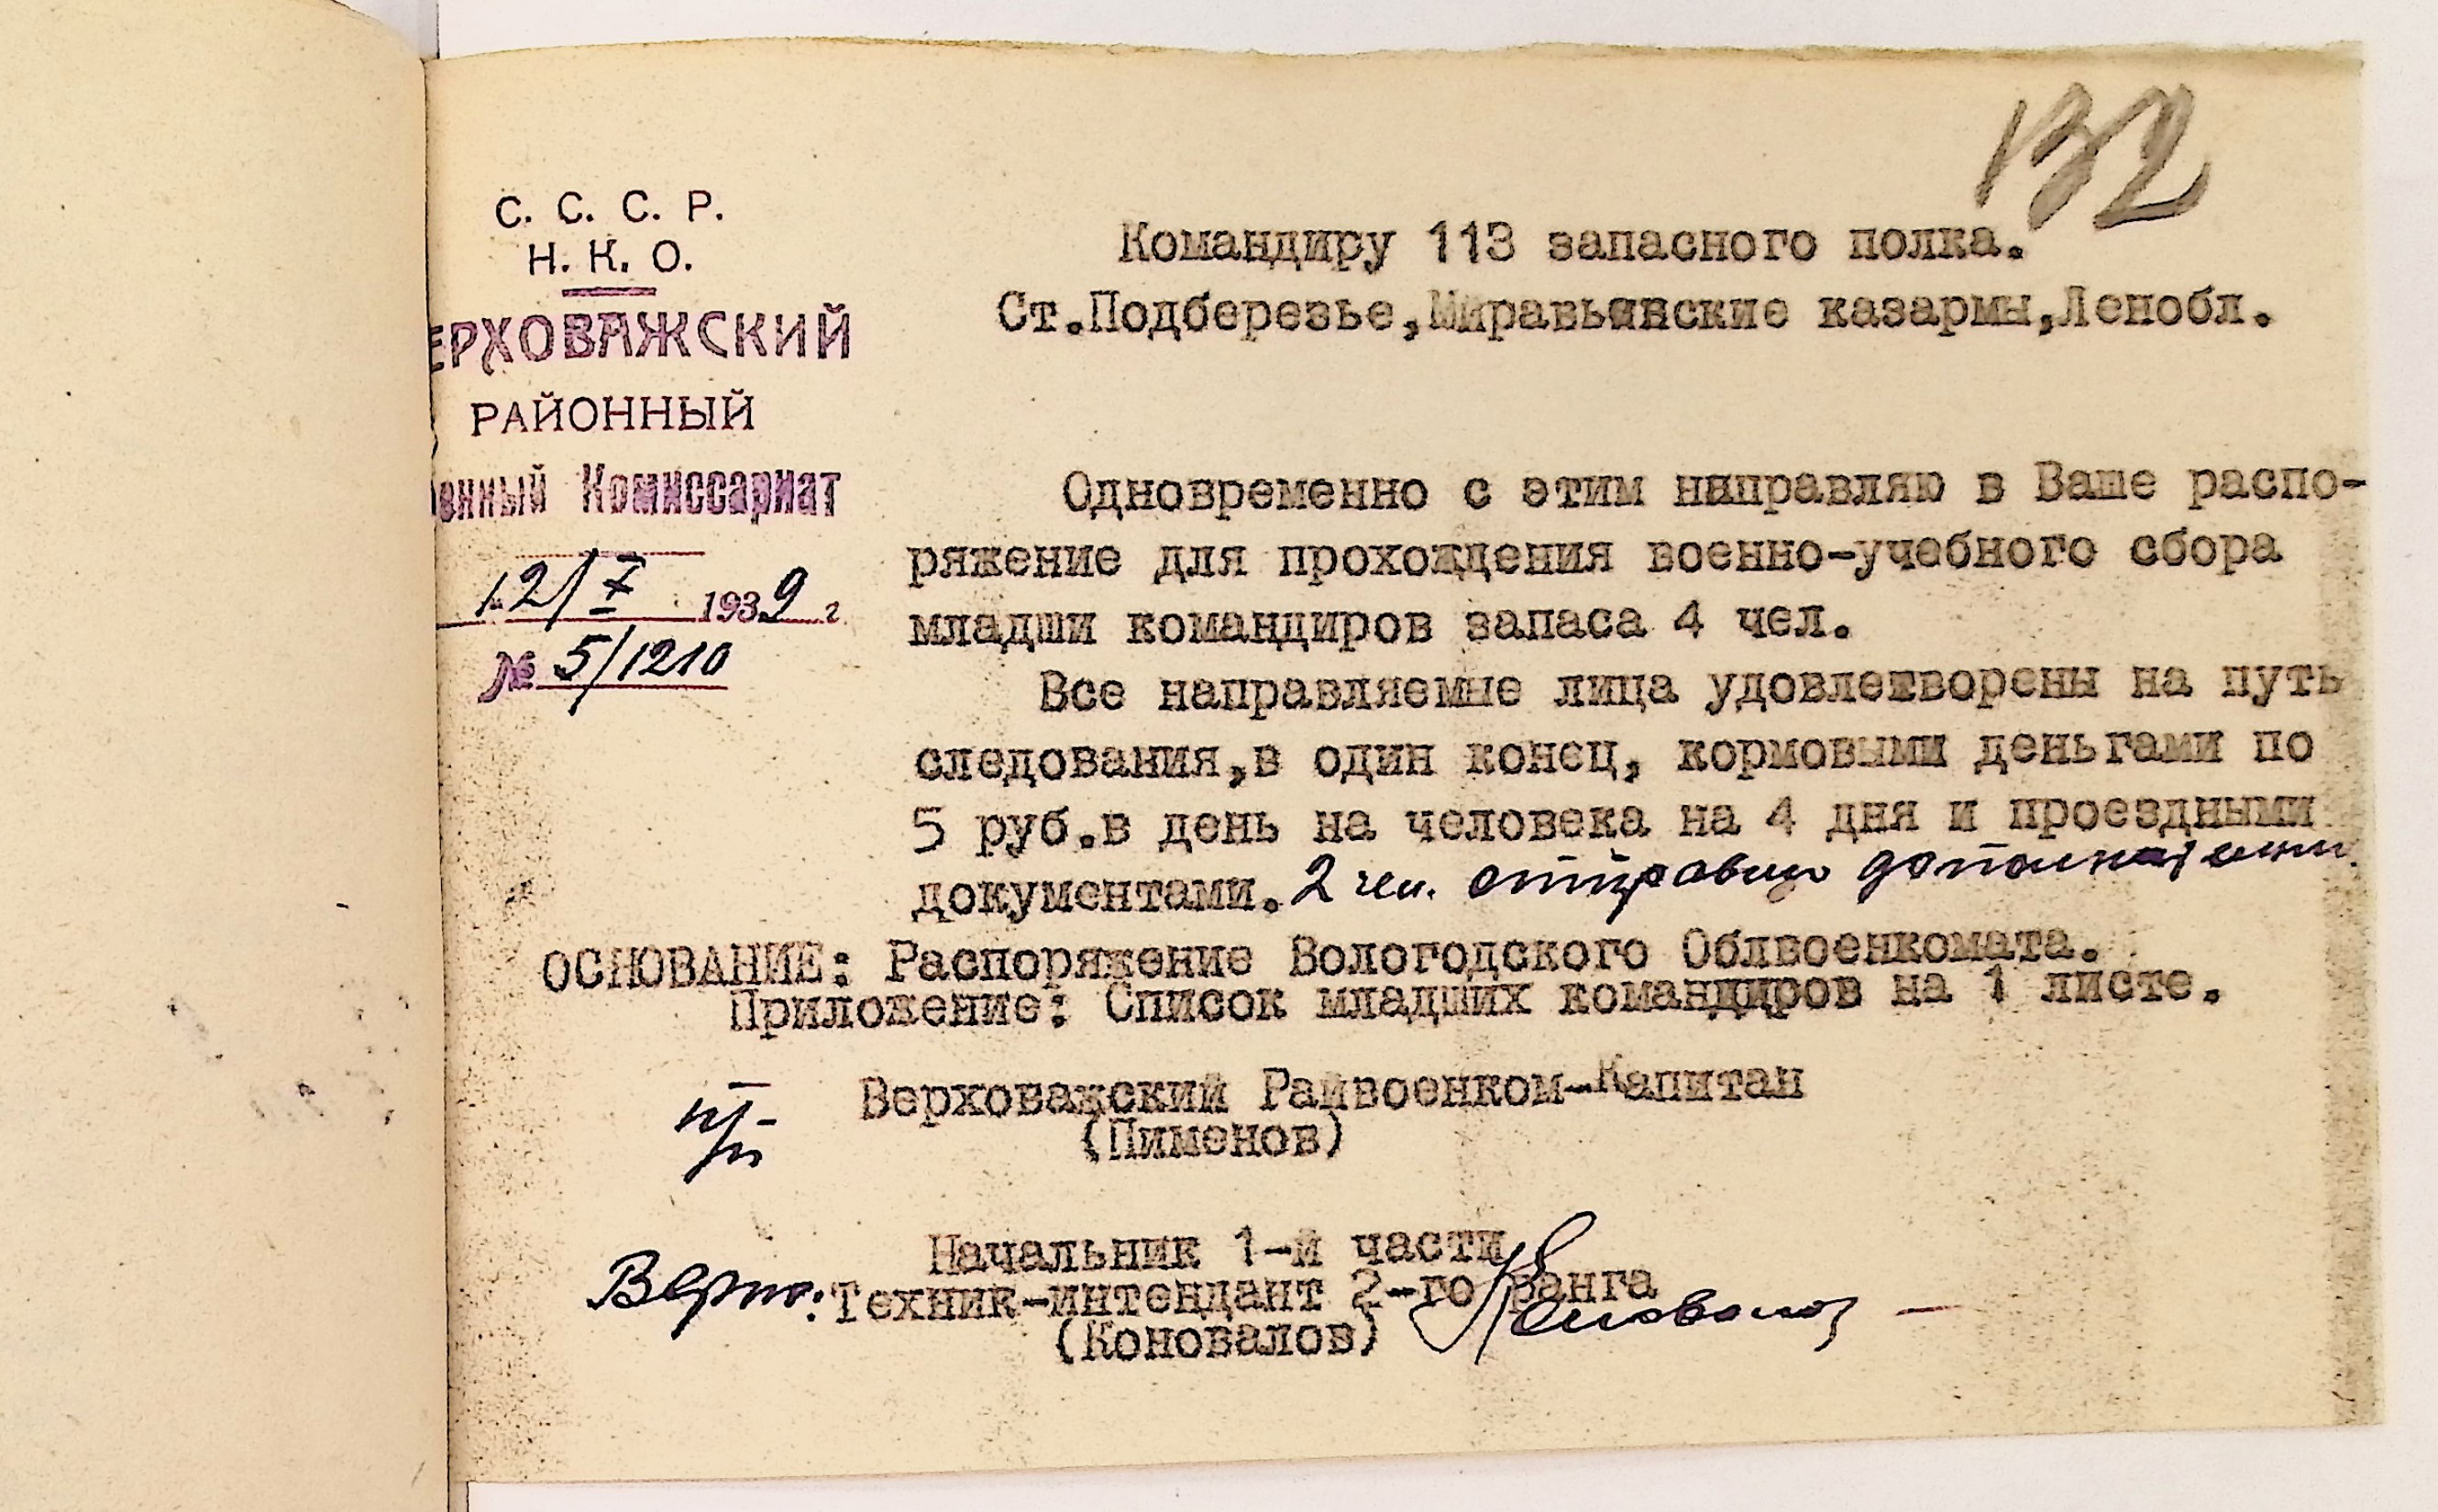 132
С. С. С. Р.
Н. К. О.
ЕРХОВАЖСКИЙ
РАЙОННЫЙ
енный Комиссариат
12/7 1939 г.
№ 5/1210
Командиру 113 запасного полка.
Ст.Подберезье, казармы,Ленобл.
Одновременно с этим направляю в Ваше распо-
ряжение для прохождения военно-учебного сбора
младши командиров запаса 4 чел.
Все направляемые лица удовлетворены на путь
следования,в один конец, кормовыми деньгами по
5 руб.в день на человека на 4 дня и проездными
документами. 2 чел. отправлю дополнительно
ОСНОВАНИЕ: Распоряжение Вологодского Облвоенкомата.
Приложение: Список младших командиров на 1 листе.
п/п Верховажский Райвоенком-Капитан
(Пименов)
Начальник 1-й части
Верно: Техник-интендант 2-го ранга
(Коновалов) Коновалов